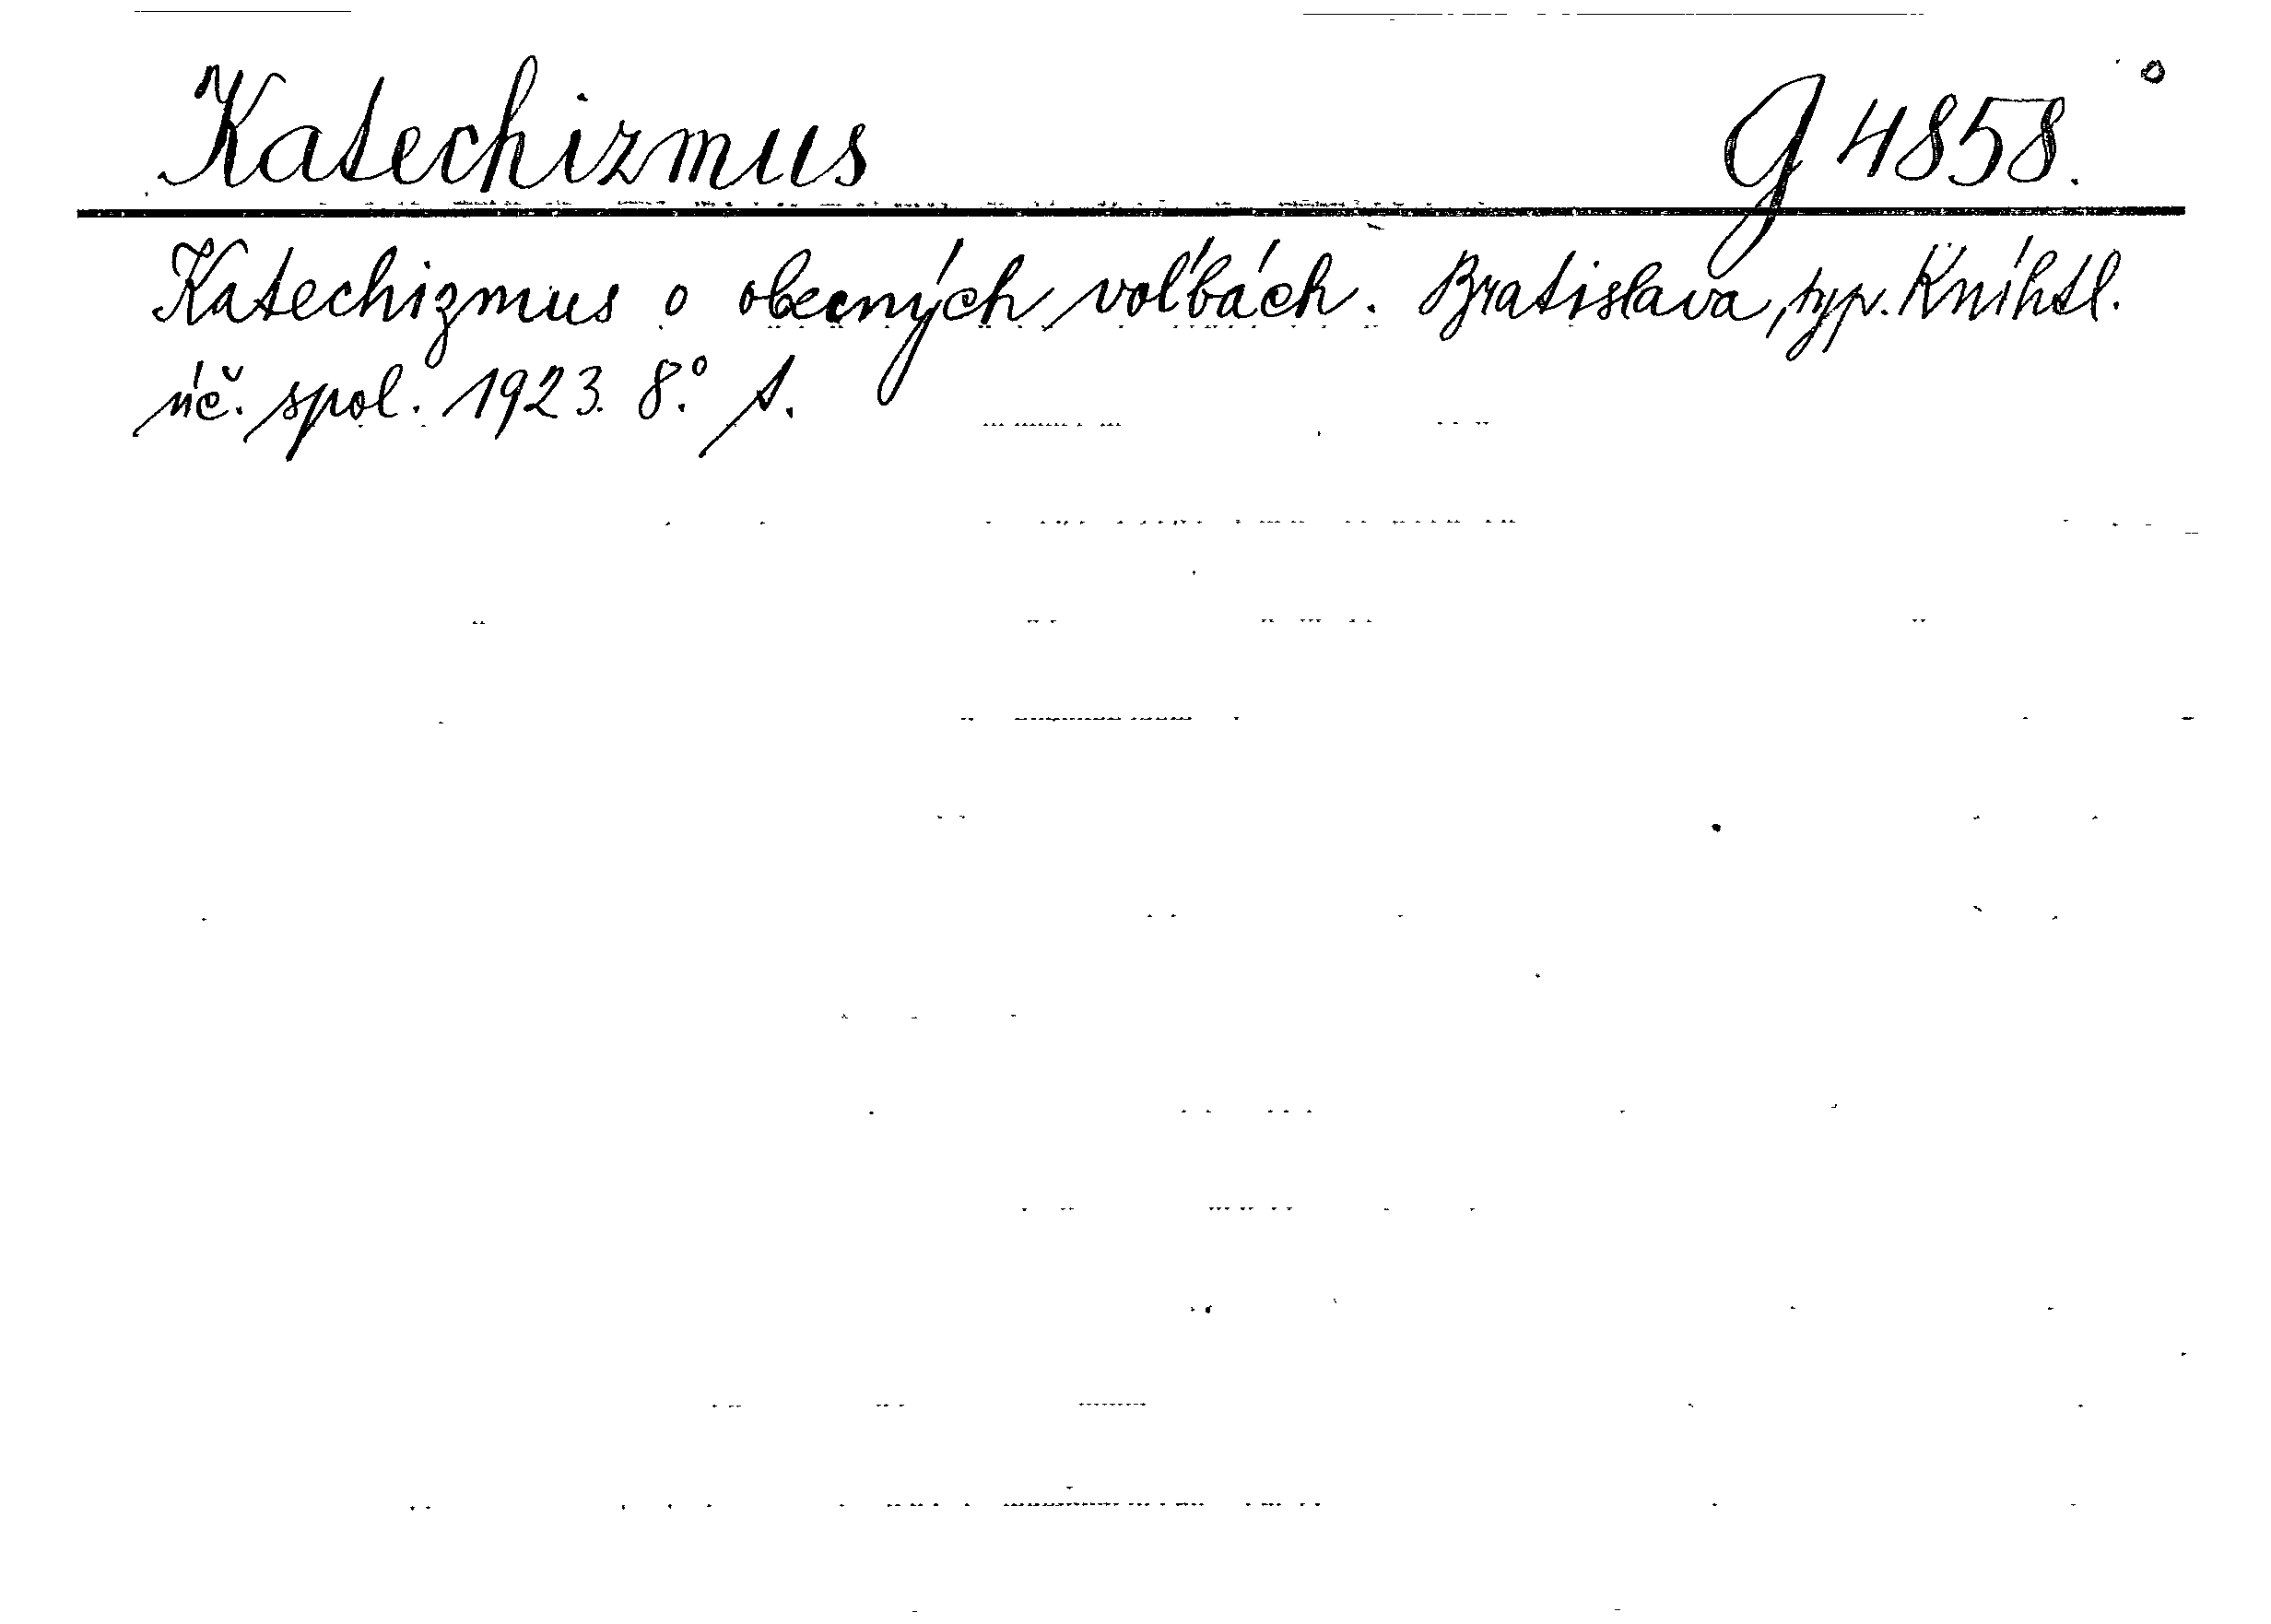 Katechizmus G 4858.
Katechizmus o obecných voľbách. Bratislava, typ. Kníhtl.
úč. spol. 1923. 8.° s.